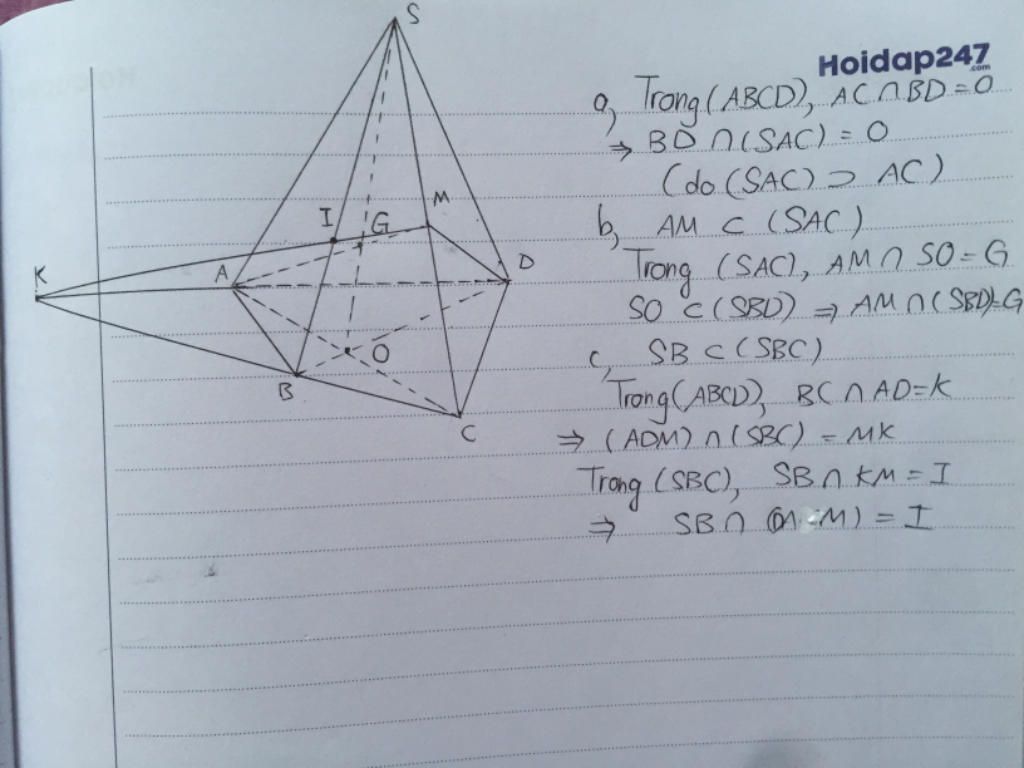 S
Hoidap247
.com
a, Trong (ABCD), AC ∩ BD = O
⇒ BD ∩ (SAC) = O
(do (SAC) ⊃ AC)
M
I
G
b, AM ⊂ (SAC)
K
A
D
Trong (SAC), AM ∩ SO = G
SO ⊂ (SBD) ⇒ AM ∩ (SBD)=G
O
c, SB ⊂ (SBC)
B
Trong (ABCD), BC ∩ AD = K
C
⇒ (ADM) ∩ (SBC) = MK
Trong (SBC), SB ∩ KM = I
⇒ SB ∩ = I